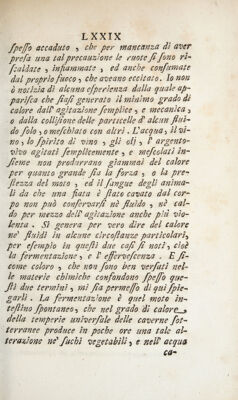 LXXIX
ſpeſſo accaduto , che per mancanza di aver
preſa una tal precauzione le ruote ſi ſono ri-
ſcaldate , infiammate , ed anche conſumate
dal proprio fuoco, che aveano eccitato. Io non
ò notizia di alcuna eſperienza dalla quale ap-
pariſca che ſiaſi generato il minimo grado di
calore dall' agitazione ſemplice , e mecanica ,
o dalla colliſione delle particelle d' alcun flui-
do ſolo , o meſchiato con altri . L'acqua, il vi-
no , lo ſpirito di vino , gli olj , l' argento-
vivo agitati ſemplicemente , e meſcolati in-
ſieme non produrrano giammai del calore
per quanto grande ſia la forza , o la pre-
ſtezza del moto , ed il ſangue degli anima-
li da che una fiata è ſtato cavato dal cor-
po non può conſervarſi nè fluido , nè cal-
do per mezzo dell' agitazione anche più vio-
lenta . Si genera per vero dire del calore
ne' fluidi in alcune circoſtanze particolari,
per eſempio in queſti due caſi ſi noti , cioè
la fermentazione , e l' efferveſcenza . E ſi-
come coloro , che non ſono ben verſati nel-
le materie chimiche confondono ſpeſſo que-
ſti due termini , mi ſia permeſſo di quì ſpie-
garli . La fermentazione è quel moto in-
teſtino ſpontaneo, che nel grado di calore
della temperie univerſale delle caverne ſot-
terranee produce in poche ore una tale al-
terazione ne' ſuchi vegetabili , e nell' acqua
ca-